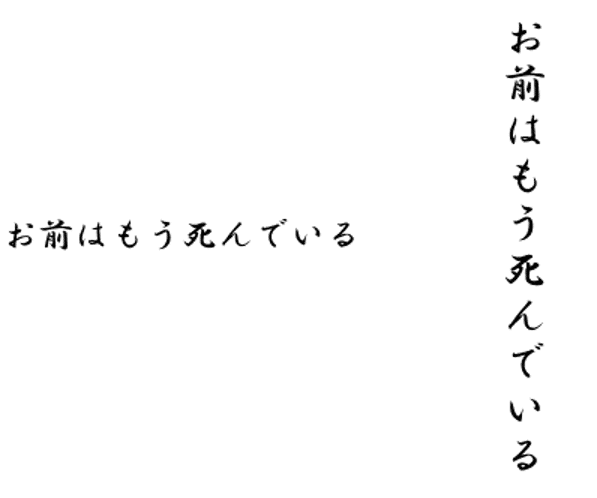 お前はもう死んでいる
お前はもう死んでいる